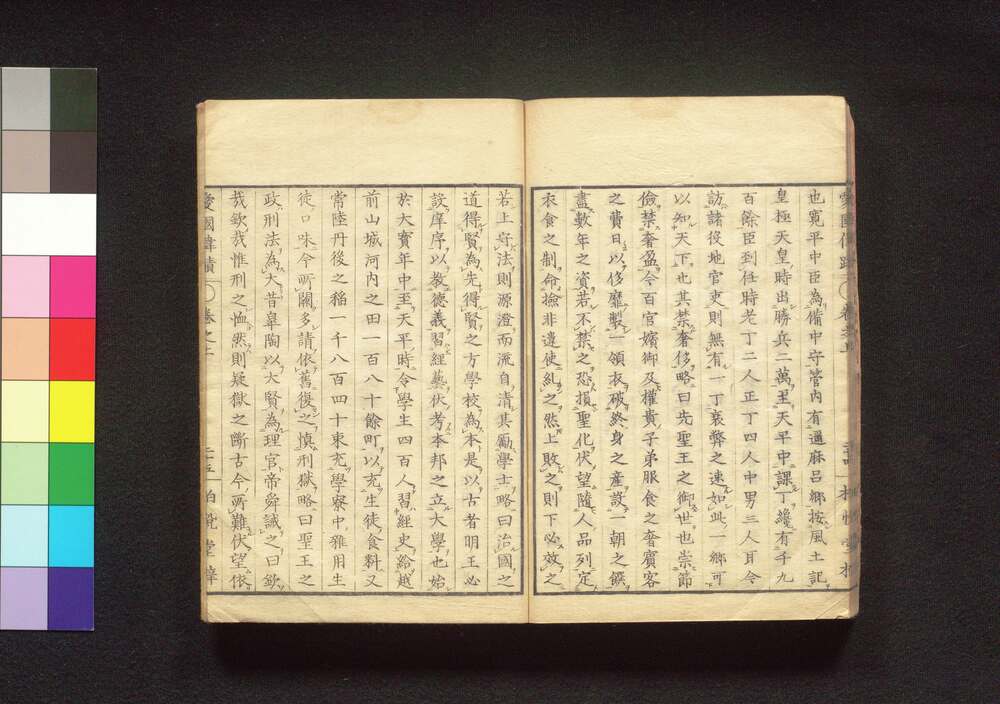 也寛平中臣為備中守管内有邇麻呂郷按風土記
皇極天皇時出勝兵二萬至天平中課丁纔有千九
百餘臣到任時老丁二人正丁四人中男三人耳今
訪諸後地官吏則無有一丁衰弊之速如此一郷可
以知天下也其禁奢侈略曰先聖王之御世也崇節
儉禁奢盈今百官嬪御及權貴子弟服食之奢賓客
之費日以侈靡製一領衣破終身之産設一朝之饌
盡數年之資若不禁之恐損聖化伏望隨人品列定
衣食之制命撿非違使糺之然上敗之則下必效之
若上守法則源澄而流自清其勵學士略曰治國之
道得賢為先得賢之方學校為本是以古者明王必
設庠序以教德義習經藝伏考本邦之立大學也始
於大寳年中至天平時令學生四百人習經史給越
前山城河内之田一百八十餘町以充生徒食料又
常陸丹後之稲一千八百四十束充學寮中雜用生
徒口味今所闕多請依舊復之慎刑獄略曰聖王之
政刑法為大昔皐陶以大賢為理官帝舜誡之曰欽
哉欽哉惟刑之恤然則疑獄之斷古今所難伏望依
愛國偉績
卷之十
二十五
柏悅堂梓